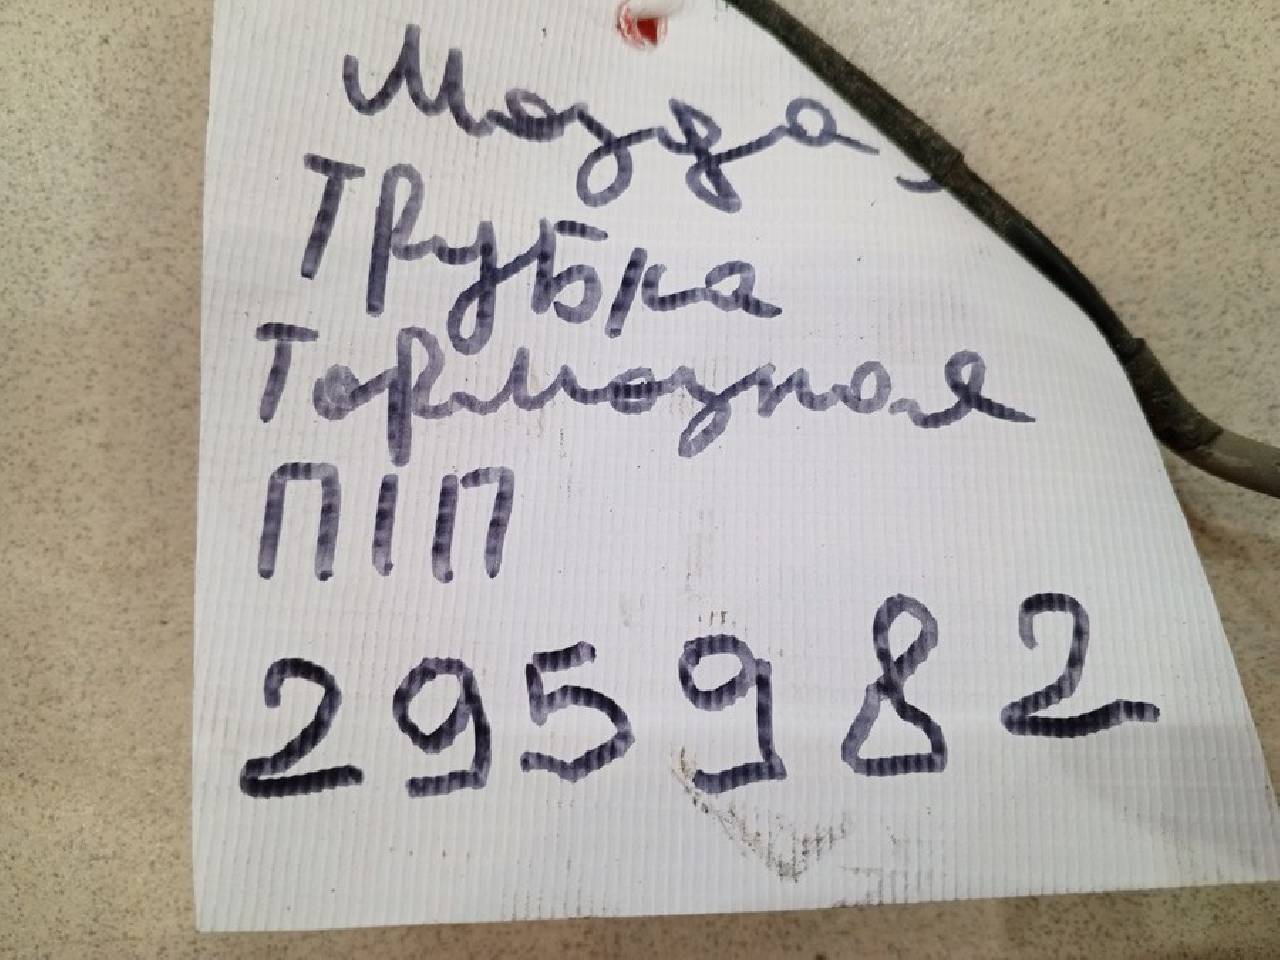 Мазда
Трубка
Тормозная
П|П
295982